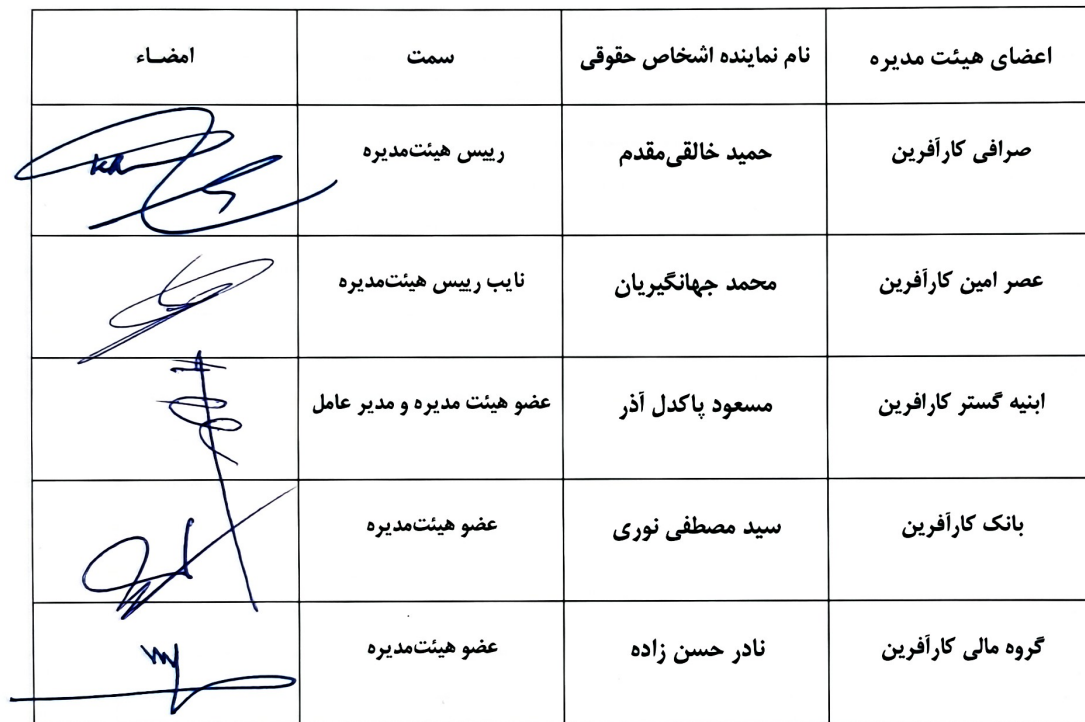 اعضای هیئت مدیره نام نماینده اشخاص حقوقی سمت امضـاء
صرافی کارآفرین حمید خالقی‌مقدم رییس هیئت‌مدیره
عصر امین کارآفرین محمد جهانگیریان نایب رییس هیئت‌مدیره
ابنیه گستر کارافرین مسعود پاکدل آذر عضو هیئت مدیره و مدیر عامل
بانک کارآفرین سید مصطفی نوری عضو هیئت‌مدیره
گروه مالی کارآفرین نادر حسن زاده عضو هیئت‌مدیره